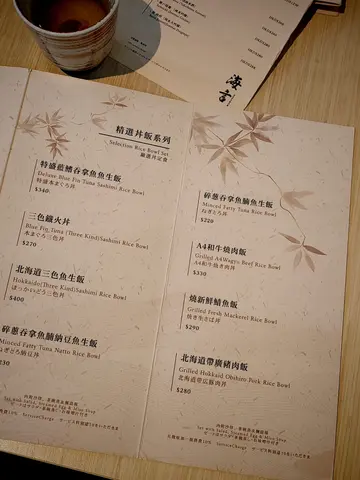 海
精選丼飯系列
Selection Rice Bowl Set
厳選丼定食
特盛藍鰭吞拿魚魚生飯
Deluxe Blue Fin Tuna Sashimi Rice Bowl
特盛本まぐろ丼
$340
三色鐵火丼
Blue Fin Tuna (Three Kind)Sashimi Rice Bowl
本まぐろ三色丼
$270
北海道三色魚生飯
Hokkaido(Three Kind)Sashimi Rice Bowl
ほっかいどう三色丼
$400
碎蔥吞拿魚腩納豆魚生飯
Minced Fatty Tuna Natto Rice Bowl
ねぎとろ納豆丼
30
Set with Salad, Steamed Egg & Miso Soup
ServiceCharge
碎蔥吞拿魚腩魚生飯
Minced Fatty Tuna Rice Bowl
ねぎとろ丼
$220
A4和牛燒肉飯
Grilled A4Wagyu Beef Rice Bowl
A4和牛焼き肉丼
$350
燒新鮮鯖魚飯
Grilled Fresh Mackerel Rice Bowl
焼き生さば丼
$290
北海道帶廣豬肉飯
Grilled Hokkaid Obihiro Pork Rice Bowl
北海道帯広豚肉丼
$280
Set with Salad, Steamed Egg & Miso Soup
ServiceCharge